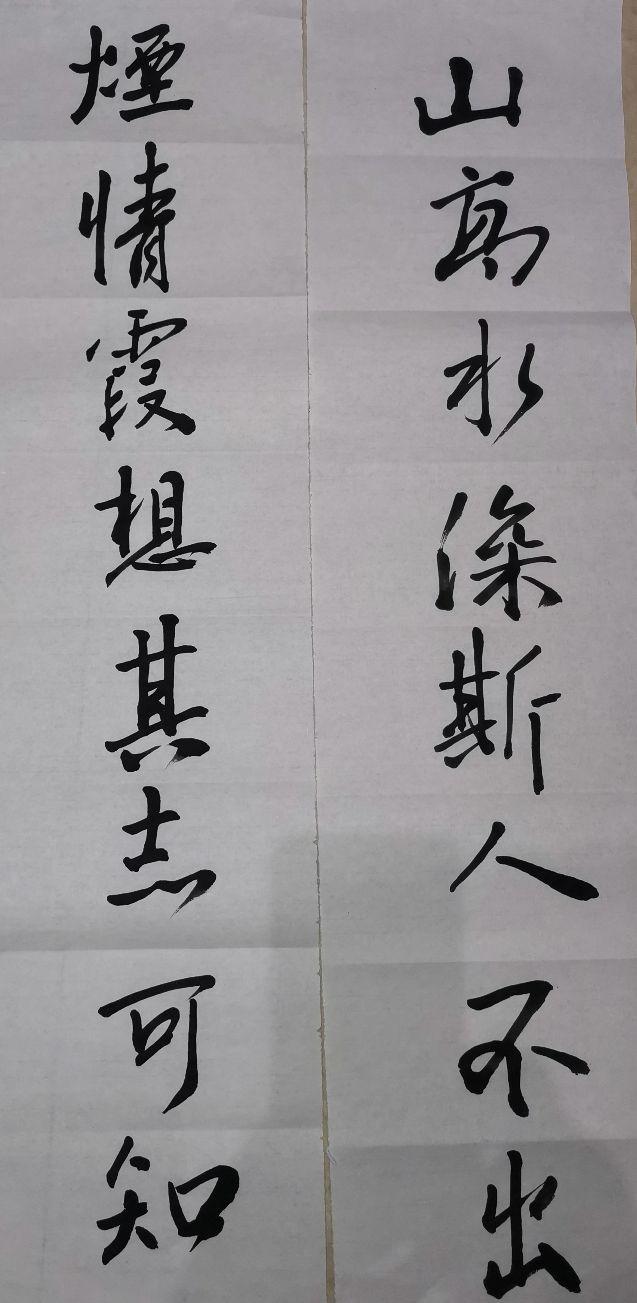 山高水深斯人不出
煙情霞想其志可知